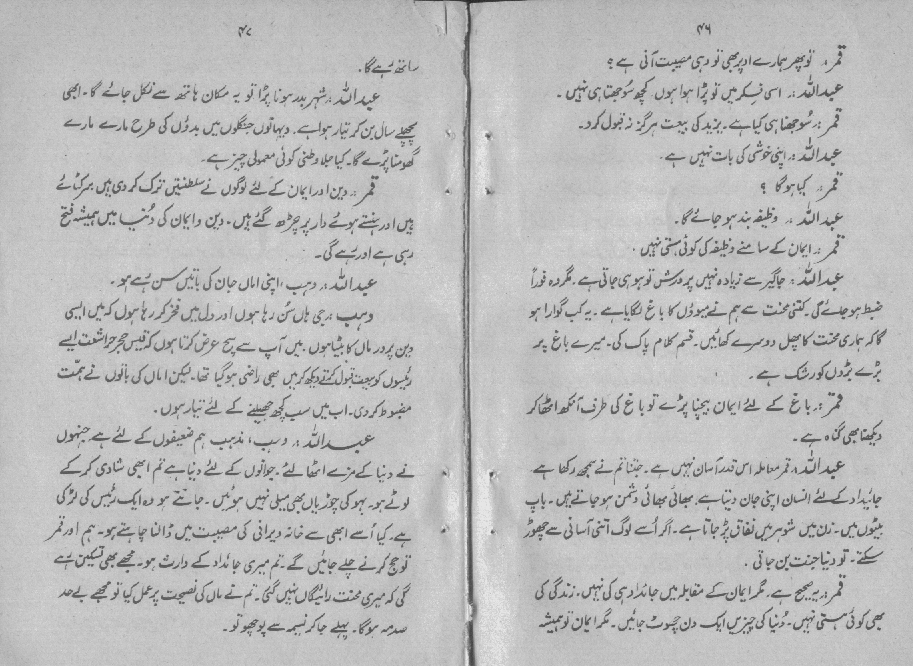 ۴۶
قمر:۔ تو پھر ہمارے اوپر بھی تو وہی مصیبت آنی ہے؟
عبداللہ:۔ اسی فکر میں تو پڑا ہوا ہوں کچھ سُوجھتا ہی نہیں۔
قمر:۔ سُوجھنا ہی کیا ہے۔ یزید کی بیعت ہرگز نہ قبول کرو۔
عبداللہ:۔ اپنی خوشی کی بات نہیں ہے۔
قمر:۔ کیا ہوگا ؟
عبداللہ:۔ وظیفہ بند ہو جائے گا۔
قمر:۔ ایمان کے سامنے وظیفہ کی کوئی ہستی نہیں۔
عبداللہ:۔ جاگیر سے زیادہ نہیں پرورش تو ہو ہی جاتی ہے۔ مگر وہ فوراً
ضبط ہو جائے گی۔ کتنی محنت سے ہم نے میووں کا باغ لگایا ہے۔ یہ کب گوارا ہو
گا کہ ہماری محنت کا پھل دوسرے کھائیں۔ قسم کلام پاک کی۔ میرے باغ پر
بڑے بڑوں کو رشک ہے۔
قمر:۔ باغ کے لئے ایمان بیچنا پڑے تو باغ کی طرف آنکھ اٹھا کر
دیکھنا بھی گناہ ہے۔
عبداللہ:۔ قمر معاملہ اس قدر آسان نہیں ہے۔ جتنا تم نے سمجھ رکھا ہے
جائیداد کے لئے انسان اپنی جان دیتا ہے۔ بھائی بھائی دشمن ہو جاتے ہیں۔ باپ
بیٹوں میں۔ زن میں شوہر میں نفاق پڑ جاتا ہے۔ اگر اُسے لوگ اتنی آسانی سے چھوڑ
سکتے۔ تو دنیا جنت بن جاتی۔
قمر:۔ یہ صحیح ہے۔ مگر ایمان کے مقابلہ میں جائداد ہی کی نہیں۔ زندگی کی
بھی کوئی ہستی نہیں۔ دُنیا کی چیزیں ایک دن چھوٹ جائیں۔ مگر ایمان تو ہمیشہ
۴۷
ساتھ رہے گا۔
عبداللہ:۔ شہر بدر ہونا پڑا تو یہ مکان ہاتھ سے نکل جائے گا۔ ابھی
پچھلے سال بن کر تیار ہوا ہے۔ دیہاتوں جنگلوں میں بدوؤں کی طرح مارے مارے
گھومنا پڑے گا۔ کیا جلا وطنی کوئی معمولی چیز ہے۔
قمر:۔ دین اور ایمان کے لئے لوگوں نے سلطنتیں ترک کر دی ہیں سر کٹائے
ہیں اور ہنستے ہوئے دار پر چڑھ گئے ہیں۔ دین و ایمان کی دُنیا میں ہمیشہ فتح
رہی ہے اور رہے گی۔
عبداللہ:۔ وہب اپنی اماں جان کی باتیں سن رہے ہو۔
وہب:۔ جی ہاں سُن رہا ہوں اور دل میں فخر کر رہا ہوں کہ میں ایسی
دین پرور ماں کا بیٹا ہوں۔ میں آپ سے سچ عرض کرتا ہوں کہ قیس حجر اشعت ایسے
رئیسوں کو بیعت قبول کرتے دیکھ کر میں بھی راضی ہو گیا تھا۔ لیکن اماں کی باتوں نے ہمت
مضبوط کر دی۔ اب میں سب کچھ جھیلنے کے لئے تیار ہوں۔
عبداللہ:۔ وہب، مذہب ہم ضعیفوں کے لئے ہے جنہوں
نے دنیا کے مزے اٹھا لئے۔ جوانوں کے لئے دنیا ہے تم ابھی شادی کر کے
لوٹے ہو۔ بہو کی چوڑیاں بھی میلی نہیں ہوئیں۔ جانتے ہو وہ ایک رئیس کی لڑکی
ہے۔ کیا اُسے ابھی سے خانہ ویرانی کی مصیبت میں ڈالنا چاہتے ہو۔ ہم اور قمر
تو حج کرنے چلے جائیں گے۔ تم میری جائداد کے وارث ہو۔ مجھے بھی تسکین رہے
گی کہ میری محنت رائیگاں نہیں گئی۔ تم نے ماں کی نصیحت پر عمل کیا تو مجھے بے حد
صدمہ ہوگا۔ پہلے جا کر نسیمہ سے پوچھو تو۔